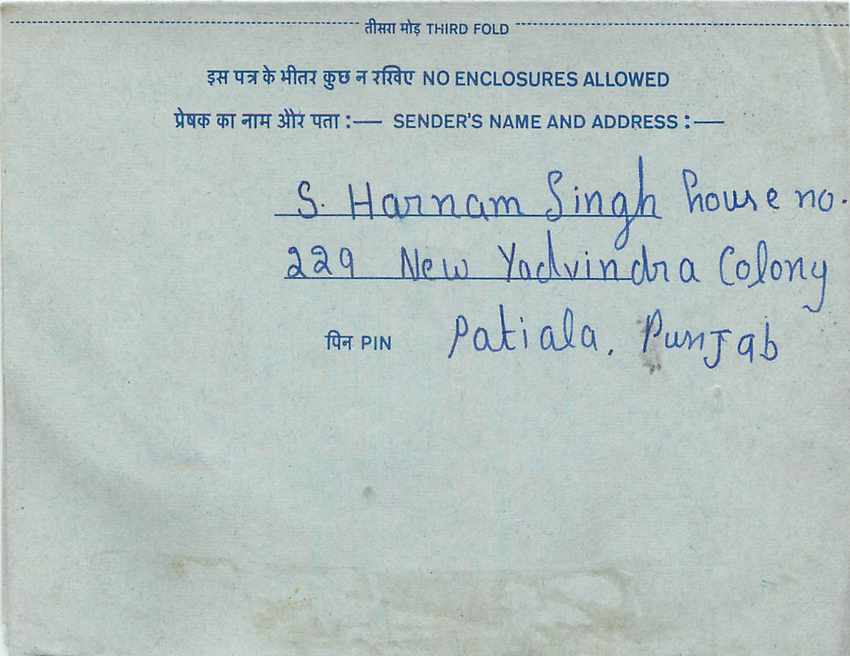 तीसरा मोड़ THIRD FOLD
इस पत्र के भीतर कुछ न रखिए NO ENCLOSURES ALLOWED
प्रेषक का नाम और पता :— SENDER'S NAME AND ADDRESS :—
S. Harnam Singh house no.
229 New Yadvindra Colony
पिन PIN Patiala, Punjab